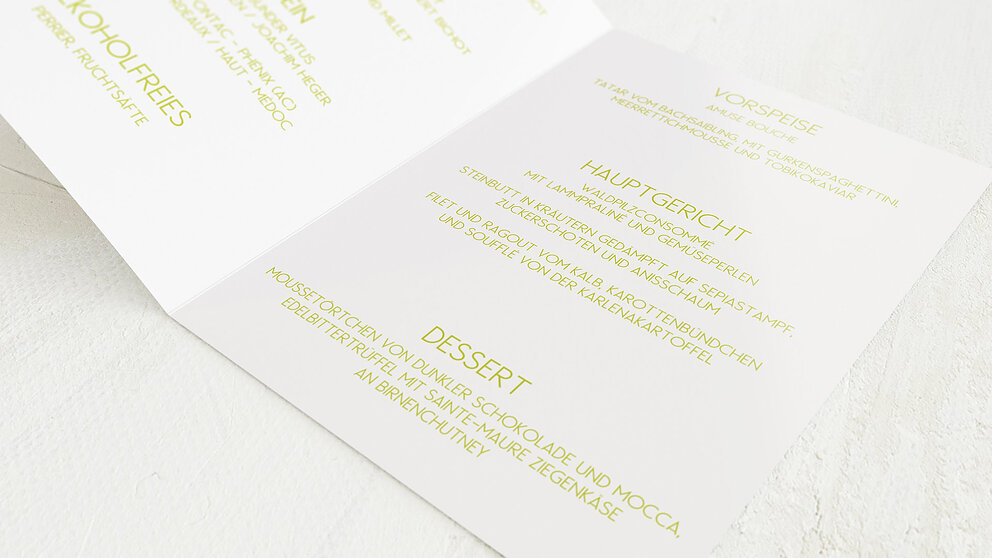 ERT BICHOT
D MILLET
EIN
UNDER VITUS
EN / JOACHIM HEGER
ONTAC - PHENIX (AC)
RDEAUX / HAUT - MEDOC
LKOHOLFREIES
PERRIER, FRUCHTSÄFTE
VORSPEISE
AMUSE BOUCHE
TATAR VOM BACHSAIBLING, MIT GURKENSPAGHETTINI,
MEERRETTICHMOUSSE UND TOBIKOKAVIAR
HAUPTGERICHT
WALDPILZCONSOMME
MIT LAMMPRALINE UND GEMÜSEPERLEN
STEINBUTT IN KRÄUTERN GEDÄMPFT AUF SEPIASTAMPF,
ZUCKERSCHOTEN UND ANISSCHAUM
FILET UND RAGOUT VOM KALB, KAROTTENBÜNDCHEN
UND SOUFFLÉ VON DER KARLENAKARTOFFEL
DESSERT
MOUSSETÖRTCHEN VON DUNKLER SCHOKOLADE UND MOCCA,
EDELBITTERTRÜFFEL MIT SAINTE-MAURE ZIEGENKÄSE
AN BIRNENCHUTNEY